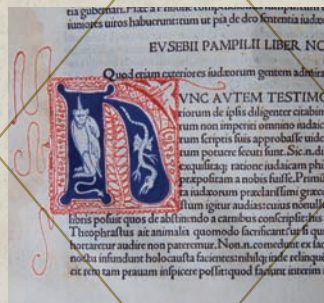 iuniores uiros habuerunt: tum ut pia de deo sententia iudæo
EVSEBII PAMPILII LIBER NO
Quod etiam exteriores iudæorum gentem admira
NVNC AVTEM TESTIMO
riorum de ipsis diligenter citabim
rum non imperiti omnino iudaic
rum scriptis suis approbasse uide
tum potuere secuti sunt. Sic.n.di
exquisita q; ratione iudaicam phi
præpositam a nobis fuisse. Primū
ta iudæorum præclarissimi græco
stum igitur audias: cuius nonulla
libris posuit quos de abstinendo a carnibus conscripsit: his
Theophrastus ait animalia quomodo sacrificant: sur si qu
hortaretur audire non pateremur. Non.n. comedunt ex sac
noctu infundunt holocausta facientes: nihilq; inde relinquū
cit rem tam prauam inspicere possit: quod faciunt interim